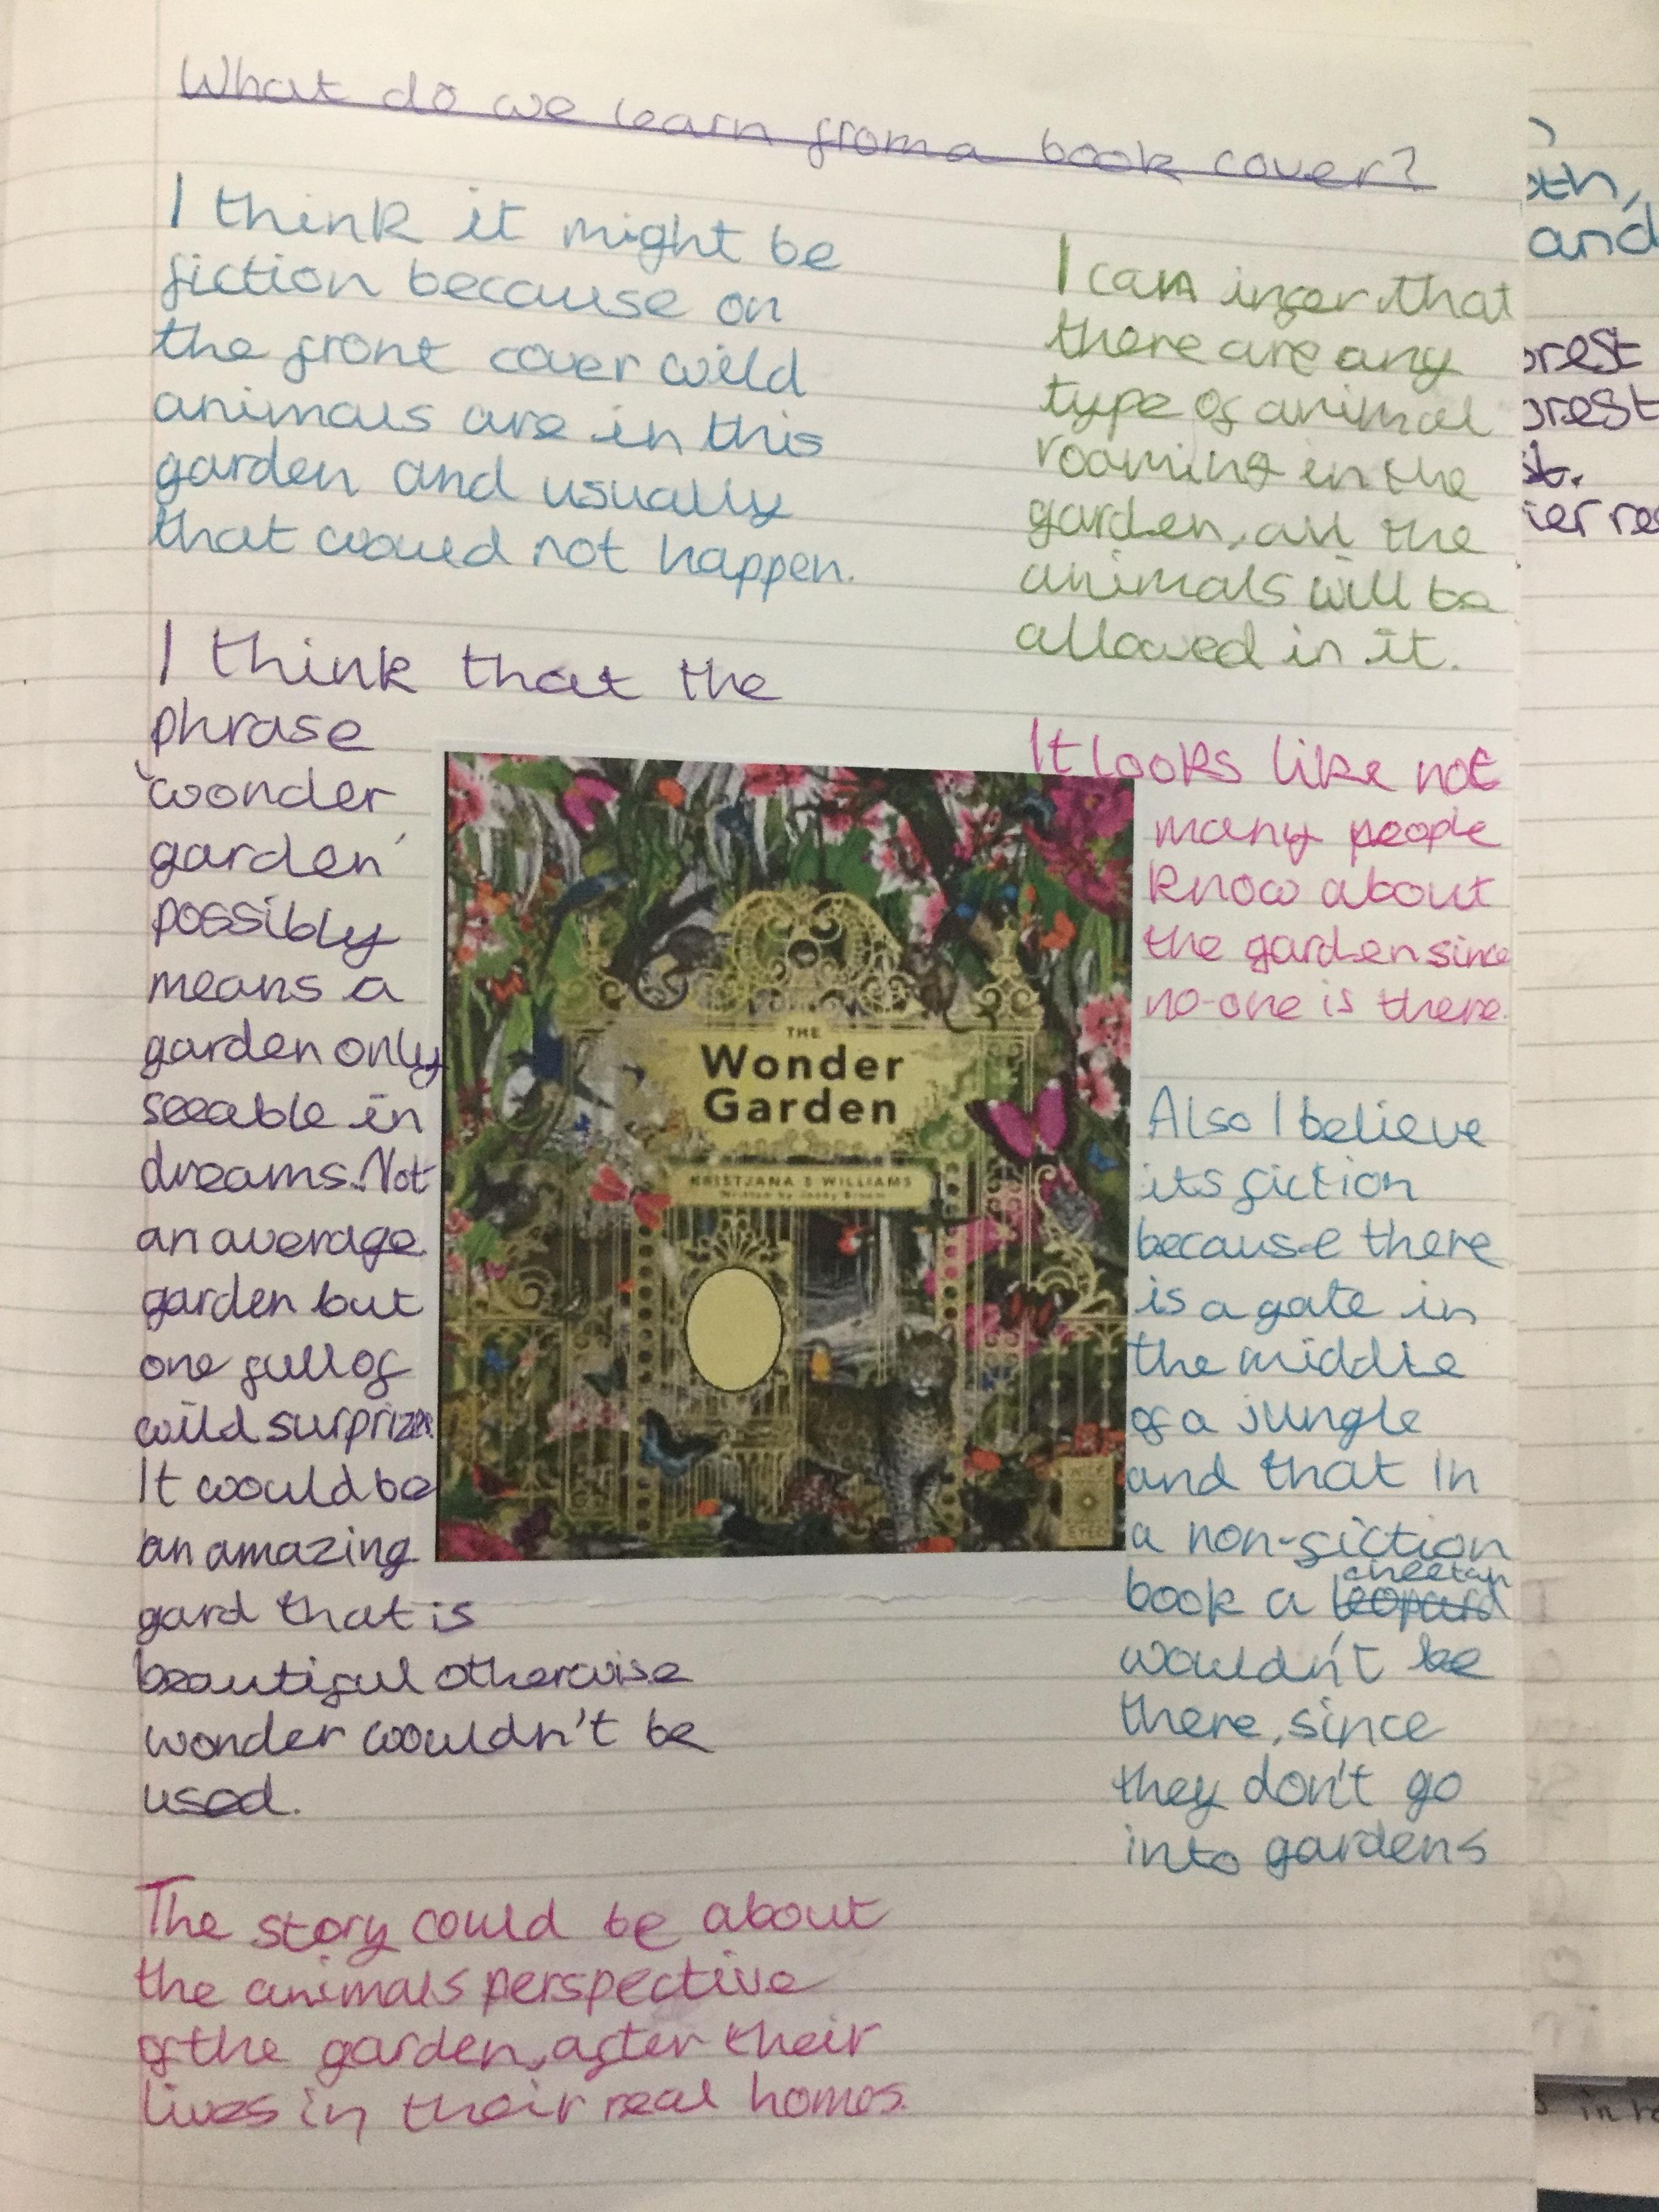 What do we learn from a book cover?
I think it might be
fiction because on
the front cover wild
animals are in this
garden and usually
that would not happen.
I can infer that
there are any
type of animal
roaming in the
garden, all the
animals will be
allowed in it.
I think that the
phrase
'wonder
garden'
possibly
means a
garden only
seeable in
dreams. Not
an average
garden but
one full of
wild surprizes.
It would be
an amazing
gard that is
beautiful otherwise
wonder wouldn't be
used.
THE
Wonder
Garden
KRISTJANA S WILLIAMS
Written by Jenny Broom
WIDE
EYED
It looks like not
many people
know about
the garden since
no-one is there.
Also I believe
its fiction
because there
is a gate in
the middle
of a jungle
and that In
a non-fiction
cheetah
book a leopard
wouldn't be
there, since
they don't go
into gardens
The story could be about
the animals perspective
of the garden, after their
lives in their real homes.
and